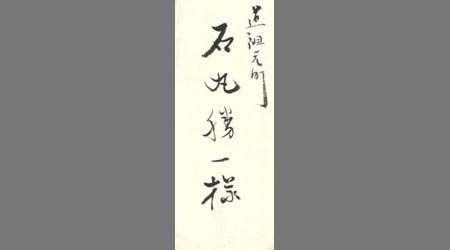 道祖元町
石丸勝一様